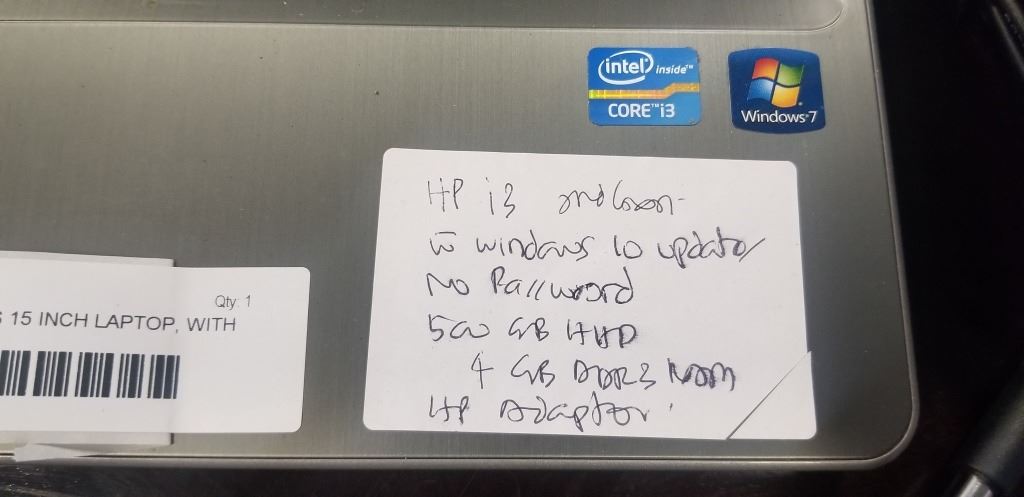 intel inside™
CORE™i3
Windows®7
HP i3
w windows 10 update/
No Password
500 GB HHD
4 GB DDR3 Ram
HP Adaptor
Qty: 1
15 INCH LAPTOP, WITH